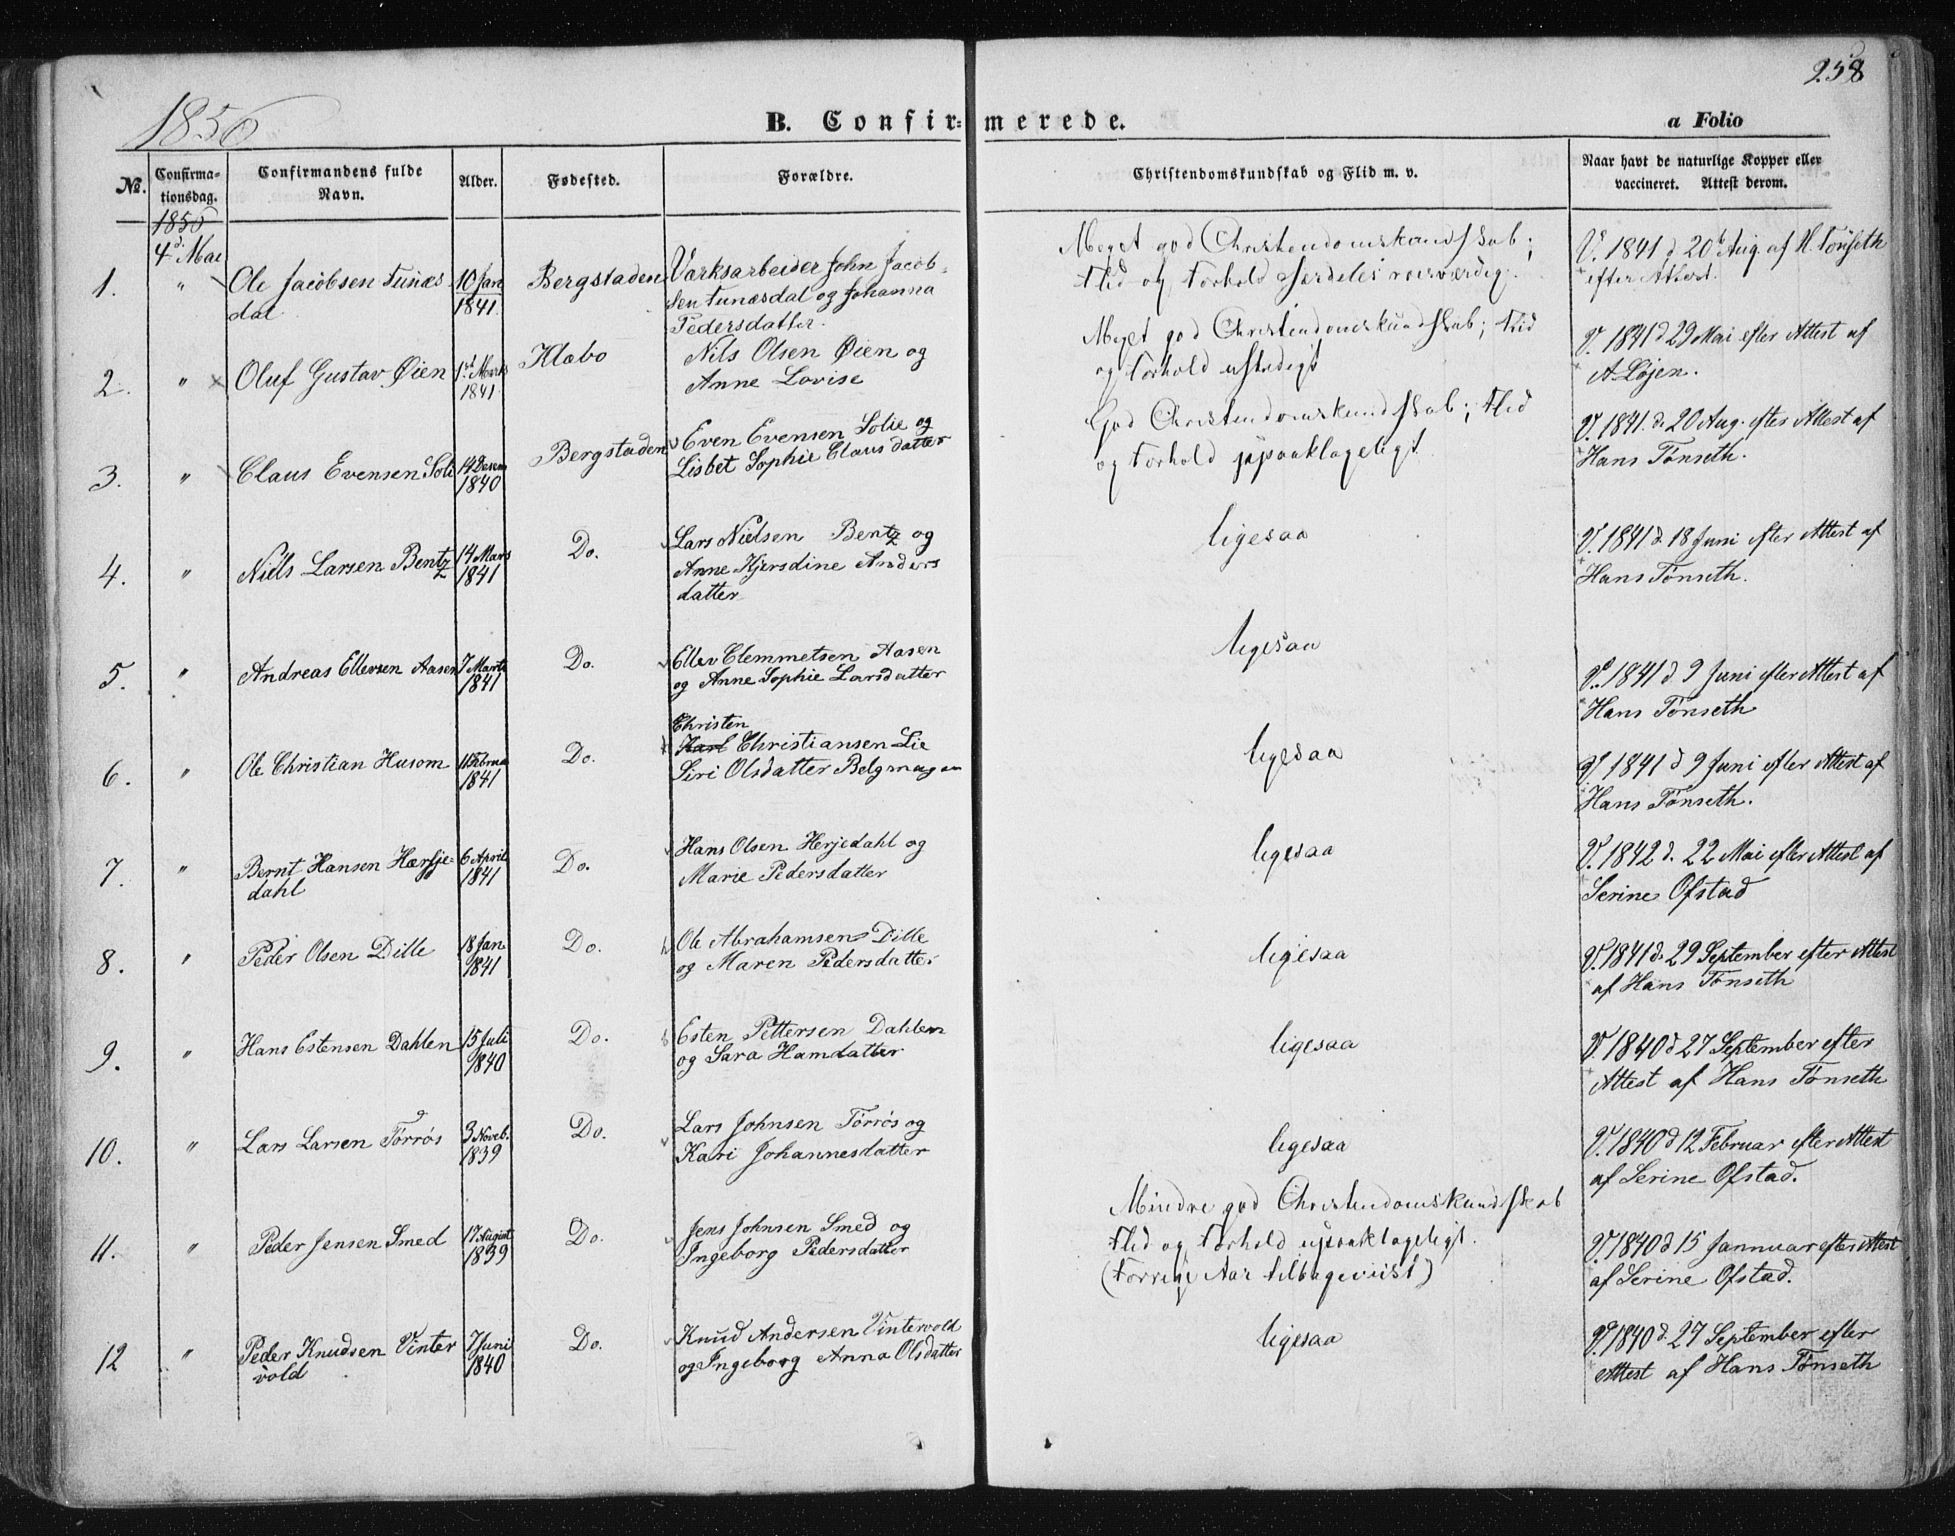 258
1856
B. Confirmerede.
a Folio
No.
Confirmationsdag.
Confirmandens fulde Navn.
Alder.
Fødested.
Forældre.
Christendomskundskab og Flid m. v.
Naar havt de naturlige Kopper eller vaccineret. Attest derom.
1856
4d Mai
1. " Ole Jacobsen Funæs
dal
10 Jan
1841
Bergstaden
Værksarbeider John Jacob-
sen Funæsdal og Johanna
Pedersdatter.
Meget god Christendomskundskab;
Flid og Forhold særdeles roesværdig.
V. 1841 d 20 Aug. af H. Tønseth
efter Attest.
2. " Oluf Gustav Øien
1 Marts
1841
Klæbo
Nils Olsen Øien og
Anne Lovise
Meget god Christendomskundskab; Flid
og Forhold
V. 1841 d 29 Mai efter Attest af
A. Løjen.
3. " Claus Evensen Soli
14 Decem
1840
Bergstaden
Even Evensen Solie og
Lisbet Sophie Clausdatter
God Christendomskundskab; Flid
og Forhold upaaklageligt
V. 1841. d. 20 Aug. efter Attest af
Hans Tønseth.
4. " Niels Larsen Bentz
14 Mars
1841
Do.
Lars Nielsen Bentz og
Anne Kjersdine Anders
datter
ligesaa
V. 1841 d. 18 Juni efter Attest af
Hans Tønseth.
5. " Andreas Ellevsen Aasen
7 Marts
1841
Do.
Ellev Clemmetsen Aasen
og Anne Sophie Larsdatter
ligesaa
V. 1841 d. 9 Juni efter Attest af
Hans Tønseth
6. " Ole Christian Husom
11 Februa
1841
Do.
Christen
Karl Christiansen Lie
Siri Olsdatter
ligesaa
V. 1841 d 9 Juni efter Attest af
Hans Tønseth.
7. " Bernt Hansen Hærje-
dahl
6 April
1841
Do.
Hans Olsen Herjedahl og
Marie Pedersdatter
ligesaa
V. 1842 d. 22 Mai efter Attest af
Serine Ofstad
8. " Peder Olsen Dille
18 Jan
1841
Do.
Ole Abrahamsen Dille
og Maren Pedersdatter
ligesaa
V. 1841 d. 29 September efter Attest
af Hans Tønseth
9. " Hans Estensen Dahlen
15 Juli
1840
Do.
Esten Pettersen Dahlen
og Sara Hansdatter
ligesaa
V. 1840 d 27 September efter
Attest af Hans Tønseth
10. " Lars Larsen Tørrøs
3 Noveb.
1839
Do.
Lars Johnsen Tørrøs og
Kari Johannesdatter
ligesaa
V. 1840 d 12 Februar efter Attest
af Serine Ofstad.
11. " Peder Jensen Smed
17 August
1839
Do.
Jens Johnsen Smed og
Ingeborg Pedersdatter
Mindre god Christendomskundskab
Flid og Forhold upaaklageligt.
(Forrige Aar tilbageviist)
V. 1840 d 15 Jannuar efter Attest
af Serine Ofstad.
12 " Peder Knudsen Vinter
vold
7 Juni
1840
Do.
Knud Andersen Vintervold
og Ingeborg Anna Olsdatter
ligesaa
V. 1840 d. 27 September efter
Attest af Hans Tønseth